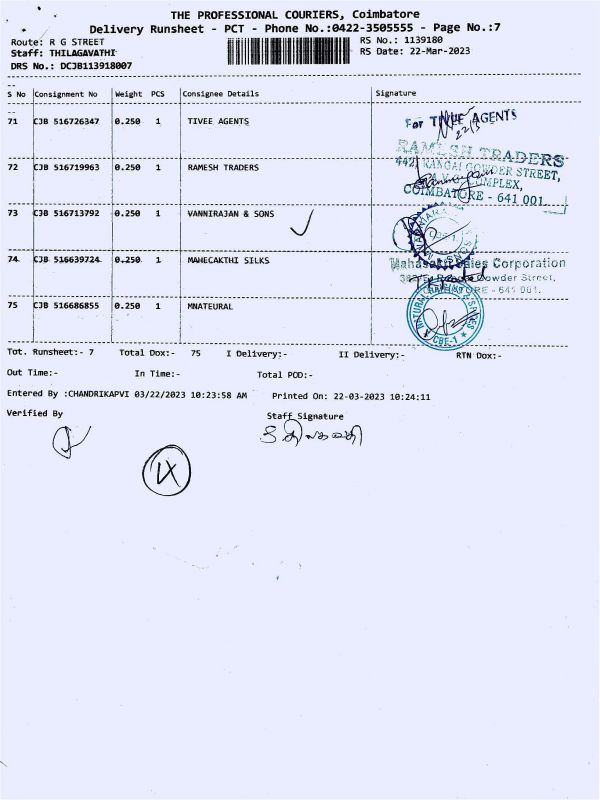 THE PROFESSIONAL COURIERS, Coimbatore
Delivery Runsheet - PCT - Phone No.:0422-3505555 - Page No.:7
Route: R G STREET RS No.: 1139180
Staff: THILAGAVATHI RS Date: 22-Mar-2023
DRS No.: DCJB113918007
S No Consignment No Weight PCS Consignee Details Signature
71 CJB 516726347 0.250 1 TIVEE AGENTS
For TIVEE AGENTS
22/3
72 CJB 516719963 0.250 1 RAMESH TRADERS
RAMESH TRADERS
442, RANGAI GOWDER STREET,
COMPLEX,
COIMBATORE - 641 001.
73 CJB 516713792 0.250 1 VANNIRAJAN & SONS
74 CJB 516639724 0.250 1 MAHECAKTHI SILKS
Mahasakti Sales Corporation
Gowder Street,
COIMBATORE - 641 001.
75 CJB 516686855 0.250 1 MNATEURAL
CBE-1
Tot. Runsheet:- 7 Total Dox:- 75 I Delivery:- II Delivery:- RTN Dox:-
Out Time:- In Time:- Total POD:-
Entered By :CHANDRIKAPVI 03/22/2023 10:23:58 AM Printed On: 22-03-2023 10:24:11
Verified By Staff Signature